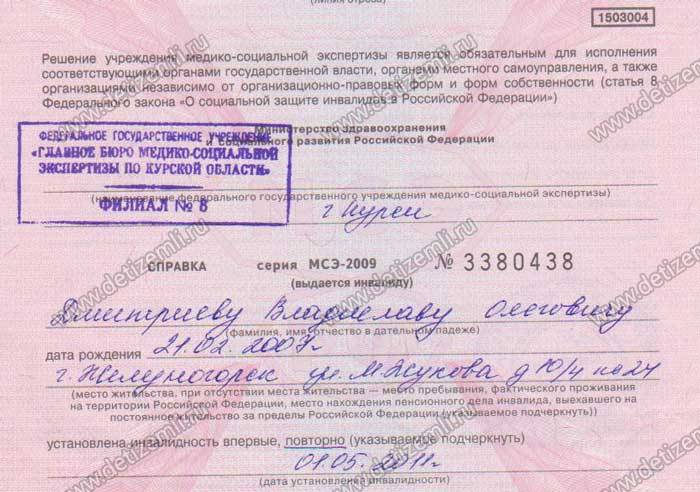 (линия отреза)
1503004
Решение учреждения медико-социальной экспертизы является обязательным для исполнения
соответствующими органами государственной власти, органами местного самоуправления, а также
организациями независимо от организационно-правовых форм и форм собственности (статья 8
Федерального закона «О социальной защите инвалидов в Российской Федерации»)
Министерство здравоохранения
и социального развития Российской Федерации
ФЕДЕРАЛЬНОЕ ГОСУДАРСТВЕННОЕ УЧРЕЖДЕНИЕ
«ГЛАВНОЕ БЮРО МЕДИКО-СОЦИАЛЬНОЙ
ЭКСПЕРТИЗЫ ПО КУРСКОЙ ОБЛАСТИ»
ФИЛИАЛ № 8
(наименование федерального государственного учреждения медико-социальной экспертизы)
г Курск
СПРАВКА серия МСЭ-2009 № 3380438
(выдается инвалиду)
Дмитриеву Владиславу Олеговичу
(фамилия, имя, отчество в дательном падеже)
дата рождения 21.02.2007г
г. Железногорск ул. М.Жукова д 10/4 кв 24
(место жительства, при отсутствии места жительства — место пребывания, фактического проживания
на территории Российской Федерации, место нахождения пенсионного дела инвалида, выехавшего на
постоянное жительство за пределы Российской Федерации (указываемое подчеркнуть))
установлена инвалидность впервые, повторно (указываемое подчеркнуть)
01.05.2011г
(дата установления инвалидности)
www.detizemli.ru